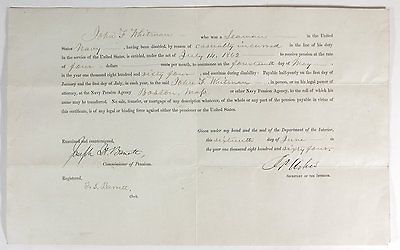 John F. Whitman who was a Seaman in the United
States Navy, having been disabled, by reason of casualty incurred in the line of his duty
in the service of the United States, is entitled, under the act of July 14, 1862 to receive pension at the rate
of four dollars cents per month, to commence on the fourteenth day of May
in the year one thousand eight hundred and sixty four, and continue during disability: Payable half-yearly on the first day of
January and the first day of July, in each year, to the said John F. Whitman in person, or to his legal power of
attorney, at the Navy Pension Agency Boston, Mass. or other Navy Pension Agency, to the roll of which his
name may be transferred. No sale, transfer, or mortgage of any description whatever, of the whole or any part of the pension payable in virtue of
this certificate, is of any legal or binding force against either the pensioner or the United States.
Given under my hand and the seal of the Department of the Interior,
this sixteenth day of June in
the year one thousand eight hundred and sixty four.
Examined and countersigned,
Joseph H. Barrett
Commissioner of Pensions.
J P Usher
SECRETARY OF THE INTERIOR.
Registered,
Clerk.